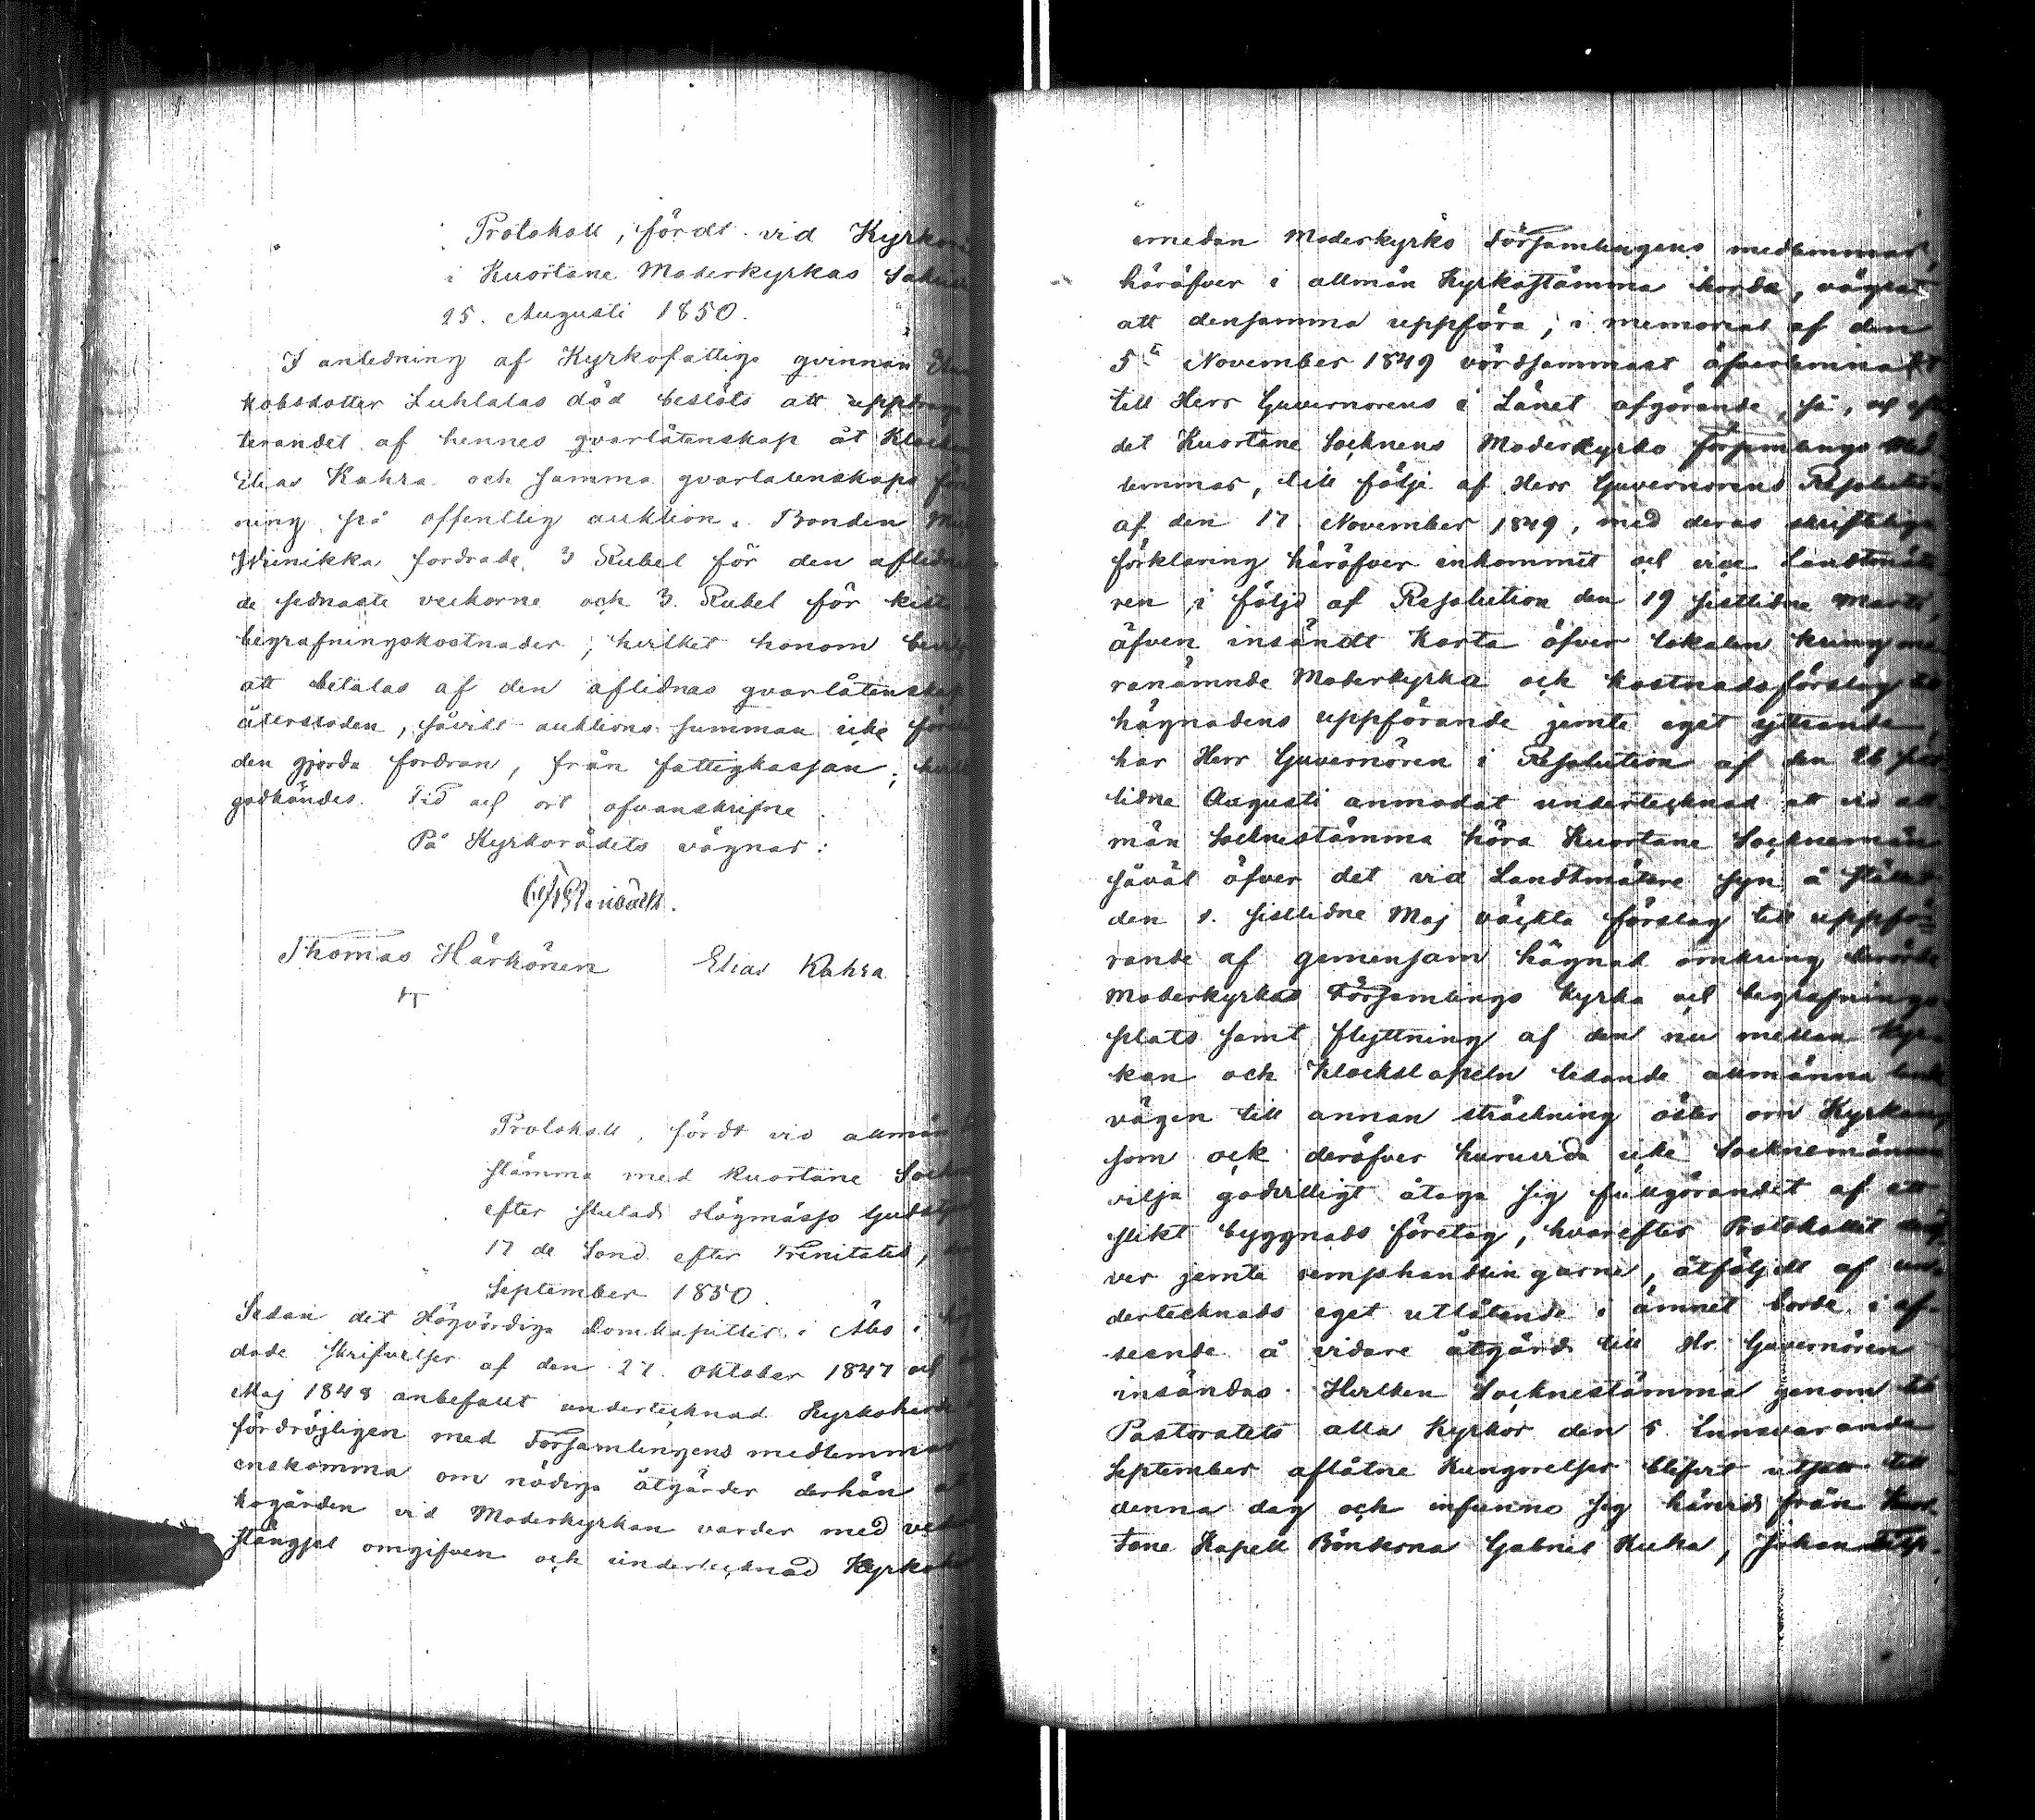 Protokoll, fördt vid Kyrkorå
i Kuortane Moderkyrkas Sakris
25. Augusti 1850.
I anledning af Kyrkofattiga qvinnan
kobsdotter Luhtalas död beslöts att uppdraga
terandet af hennes qvarlåtenskap åt Klockar
Elias Kahra och samma qvarlatenskaps för
ning på offentlig auktion. Bonden
fordrade 3 Rubel för den aflidne
de sednaste veckorne och 3. Rubel för kista
begrafningskostnader, hvilket honom bevilj
att betalas af den aflidnas qvarlåtenskap
återstoden, såvidt auktions summan icke
den gjorda fordran, från fattigkassan; hvilk
godkändes. Tid och ort ofvanskrifne
På Kyrkorådets vägnar:
Thomas Härkönen Elias Kahra
Protokoll, fördt vid allmän
stämma med Kuortane Sockn
efter slutad Högmässo Gudstjen
17 de Sönd. efter Trinitatis,
September 1850.
Sedan det Högvördiga Domkapitlet i Åbo i
dade skrifvelser af den 27. Oktober 1847 och
Maj 1848 anbefallt undertecknad Kyrkoherde
fördröjligen med Församlingens medlemmar
enskomma om nödiga åtgärder derhän att
kogården vid Moderkyrkan varder med
stängsel omgifven och undertecknad Kyrkohe
emedan Moderkyrko Församlingens medlemmar,
häröfver i allmän Kyrkostämma hörda, vägrat
att densamma uppföra, i memorial af den
5te November 1849 vördsammast öfverlemnadt
till Herr Guvernorens i Länet afgörande, så, och
det Kuortane Socknens Moderkyrko församlings med
lemmar, till följe af Herr Guvernorens Resolution
af den 17 November 1849, med deras skriftliga
förklaring häröfver inkommit och vice Landtmäta
ren, i följd af Resolution den 19 sistlidne Martii,
äfven insändt Karta öfver lokalen kring me
ranämnde Moderkyrka och kostnadsförslag till
hägnadens uppförande jemte eget yttrande,
har Herr Guvernören i Resolution af den 26 sist
lidne Augusti anmodat undertecknad att vid all
män Socknestämma höra Kuortane Socknemän
såväl öfver det vid Landtmätare syn å stället
den 1. sistlidne Maj väckta förslag till uppfö-
rande af gemensam hägnad omkring berörde
Moderkyrkas Församlings Kyrka och begrafnings
plats samt flyttning af den nu mellan Kyr-
kan och Klockstapeln ledande allmänna
vägen till annan sträckning öster om Kyrkan,
som ock deröfver huruvida icke Socknemännen
vilja godvilligt åtaga sig fullgörandet af ett
slikt byggnads företag, hvarefter Protokollet deröf-
ver jemte remisshandlingarne, åtföljdt af un-
dertecknads eget utlåtande i ämnet borde i af-
seende å vidare åtgärd till Hr Guvernören
insändas. Hvilken Socknestämma genom till
Pastoratets alla Kyrkor den 5. Innevarande
September aflåtne Kungörelser blifvit utsatt till
denna dag och infunno sig härvid från Kuor-
tane Kapell Bönderna Gabriel Kuha, Johan